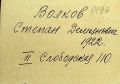 Волков
Степан Дементьевич
1922.
II Слободская 10.